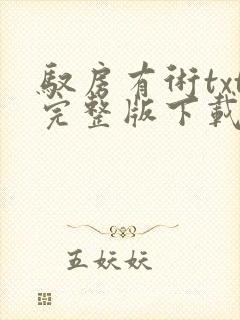 驭房有术txt
完整版下载
五妖妖